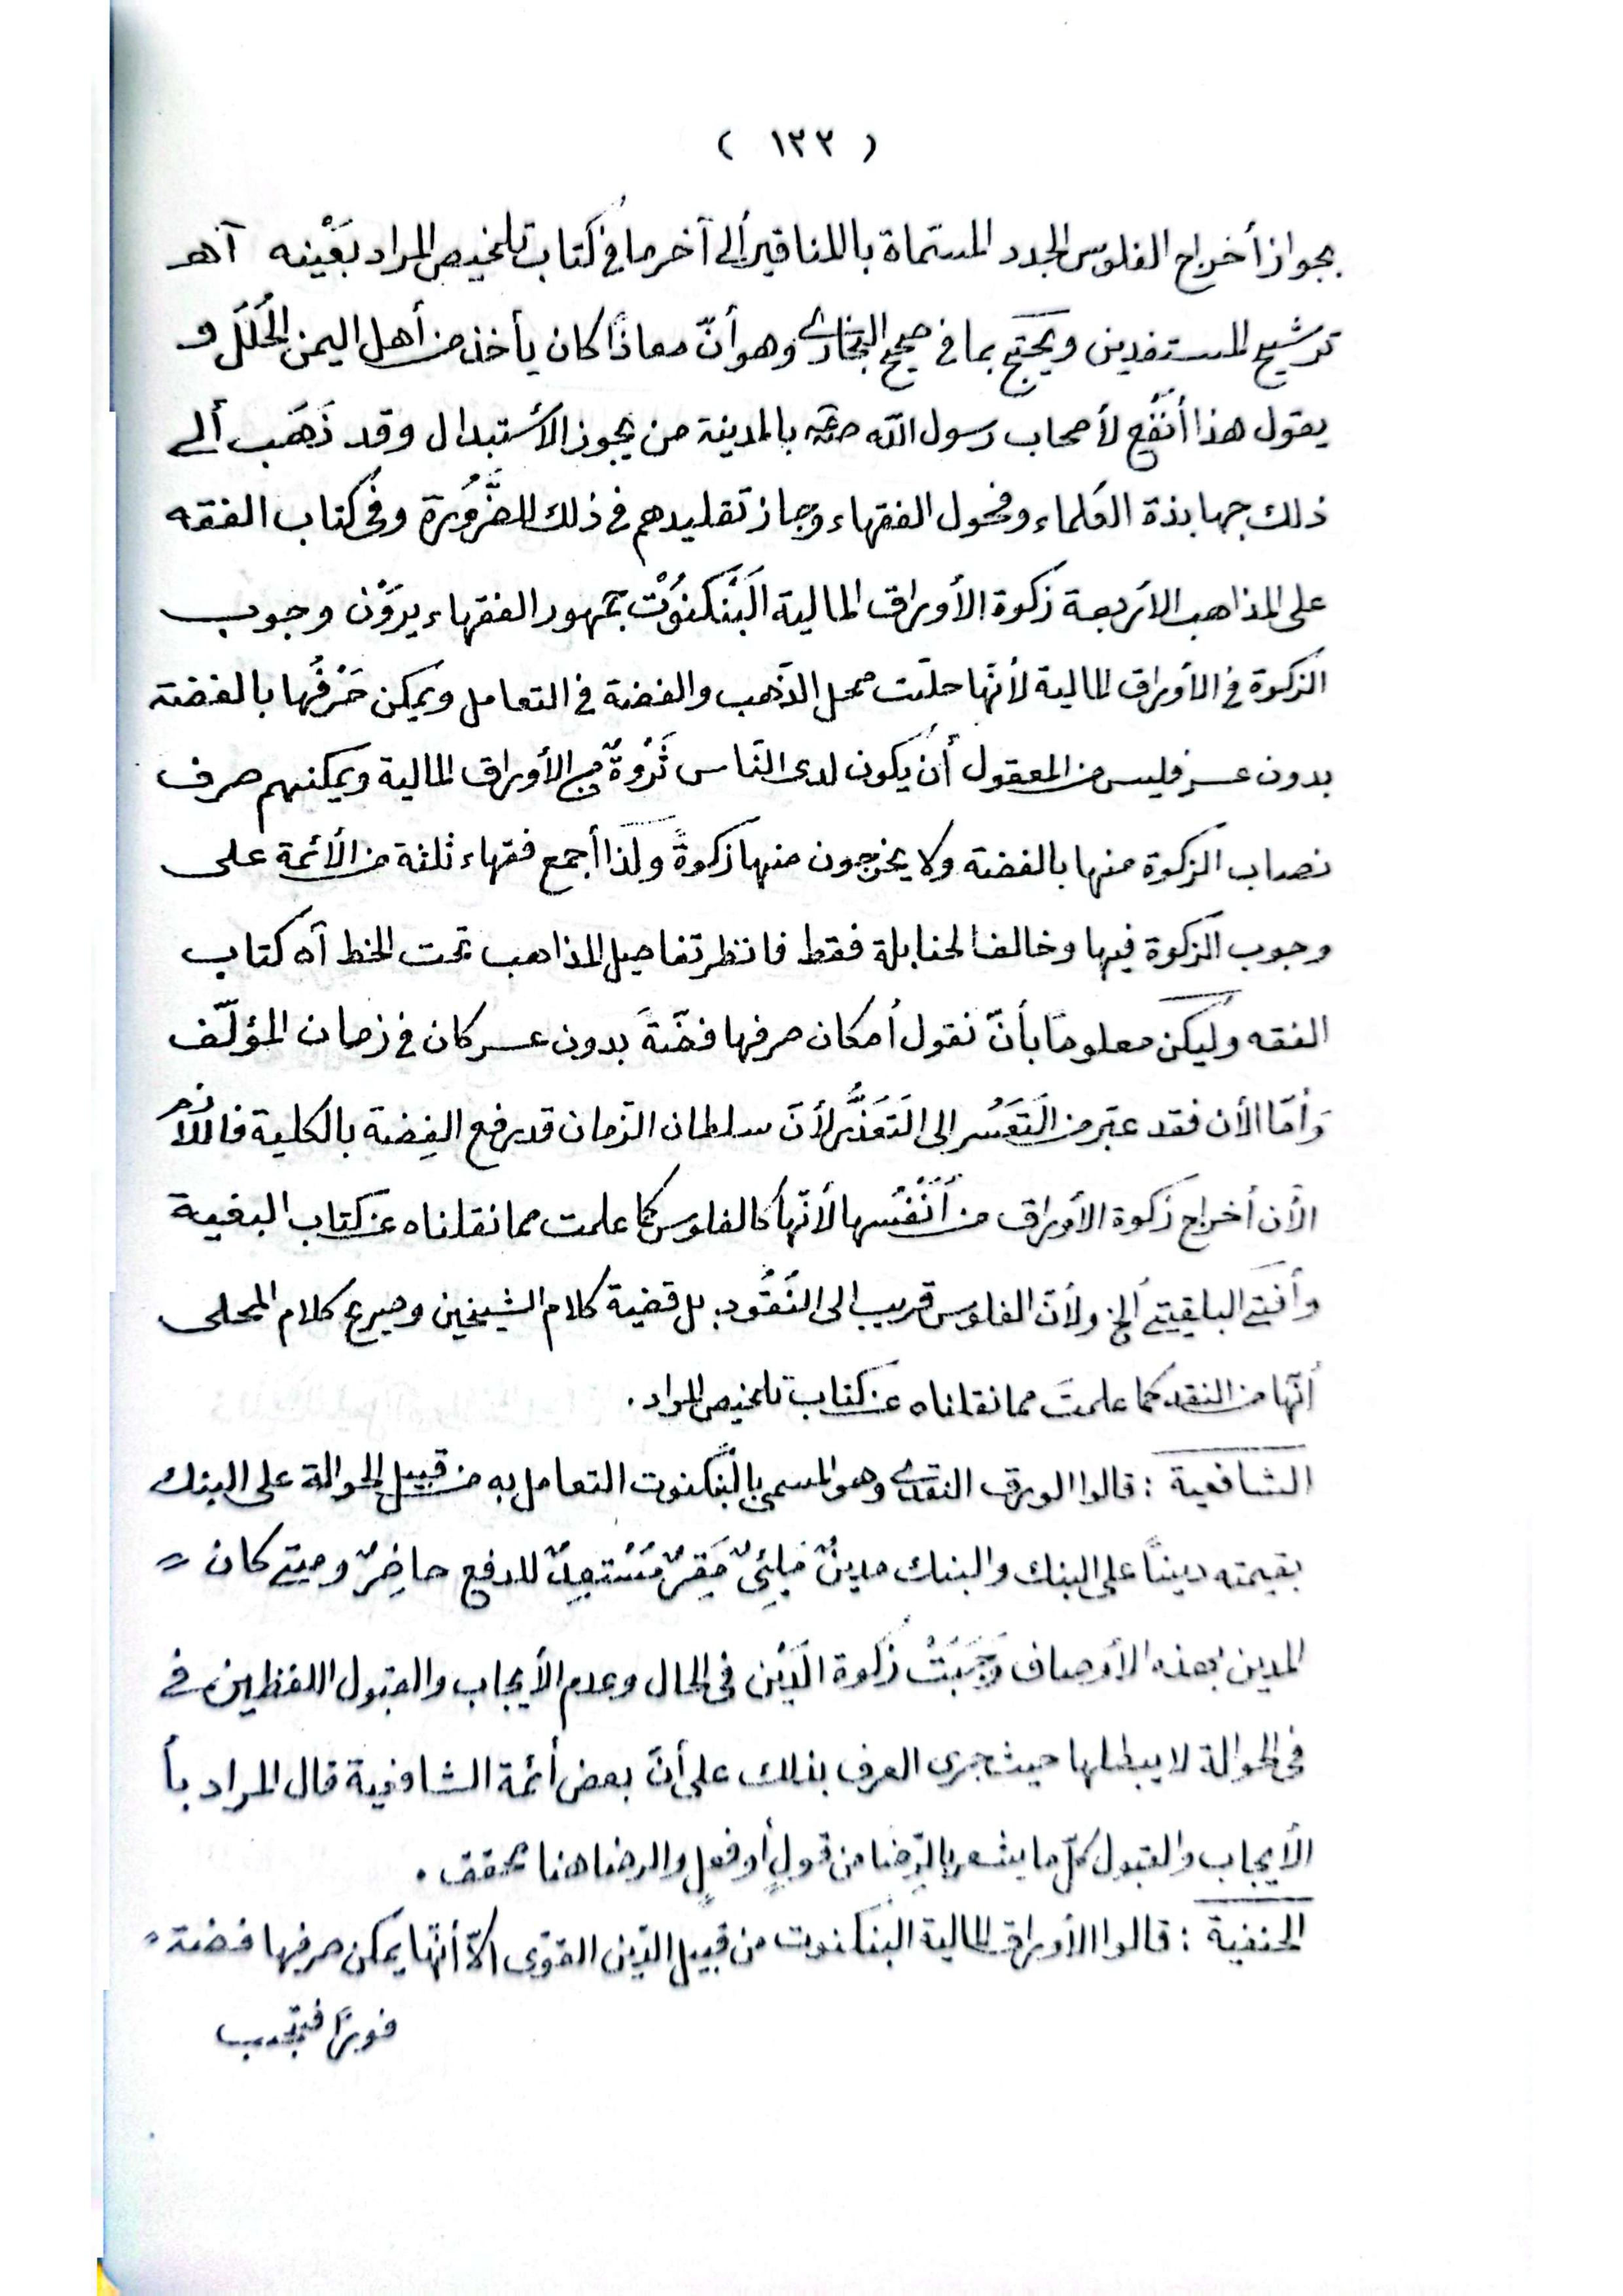 ( ١٢٢ )
بجواز أخراج الفلوس الجدد المسمّاة بالمناقير ألى آخر ما في كتاب تلخيص المراد بعَيْنه آهـ
ترشيح المستفدين ويحتج بما فى صحيح البخارى وهو أنّ معاذًا كان يأخذ من أهل اليمن الحُلَلَ و
يقول هذا أنفَع لأصحاب رسول الله صلعم بالمدينة من يجوز الأستبدال وقد ذَهَب ألى
ذلك جهابذة العُلماء وفحول الفقهاء وجاز تقليدهم فى ذلك للضَّرُورَة وفى كتاب الفقه
على المذاهب الأربعة زكوة الأوراق المالية البَنْكنوْت جمهور الفقهاء يروْن وجوب
الزكوة فى الأوراق المالية لأنّها حلّت محل الذّهب والفضة فى التعامل ويمكن صَرْفُها بالفضة
بدون عسر فليس من المعقول أن يكون لدى النّاس ثَرْوةٌ من الأوراق المالية ويمكنهم صرف
نصاب الزكوة منها بالفضة ولا يخرجون منها زكوةً ولذا أجمع فقهاء ثلثة من الأئمة على
وجوب الزكوة فيها وخالف الحنابلة فقط فانظر تفاصيل المذاهب تحت الخط آه كتاب
الفقه وليكن معلومًا بأنّ نقول أمكان صرفها فضّةً بدون عسر كان فى زمان المؤلّف
وَأمّا الأن فقد عبّر من التَعَسُر الى التَعَذُّر لأنّ سلطان الزّمان قد رفع الفِضة بالكلية فاللازم
الأن أخراج زكوة الأوراق من أَنْفُسها لأنّها كالفلوس كما علمت مما نقلناه عن كتاب البغية
وأفتى البلقينى ألخ ولأنّ الفلوس قريب الى النُقُود بل قضية كلام الشيخين وصريح كلام المحلى
أنّها من النقد كما علمتَ مما نقلناه عن كتاب تلخيص المراد .
الشافعية : قالوا الورق النقدى وهو المسمى بالبَنْكنوت التعامل به من قبيل الحوالة على البنك
بقيمته ديناً على البنك والبنك مدينٌ مَلِئٌ مُقِرٌ مُسْتَعِدٌ للدفع حاضِرٌ ومتى كان =
المدين بهذه الأوصاف وَجَبَتْ زكوة الدَيْن فى الحال وعدم الأيجاب والقبول اللفظين فى
فى الحوالة لا يبطلها حيث جرى العرف بذلك على أنّ بعض أئمة الشافعية قال المراد بأ
الأيجاب والقبول كلّ ما يشعر بالرّضا من قولٍ أو فعلٍ والرضا هنا محقق .
الحنفية : قالوا الأوراق المالية البنكنوت من قبيل الدّين القوى الّا أنّها يمكن صرفها فضة =
فورًا فتجب